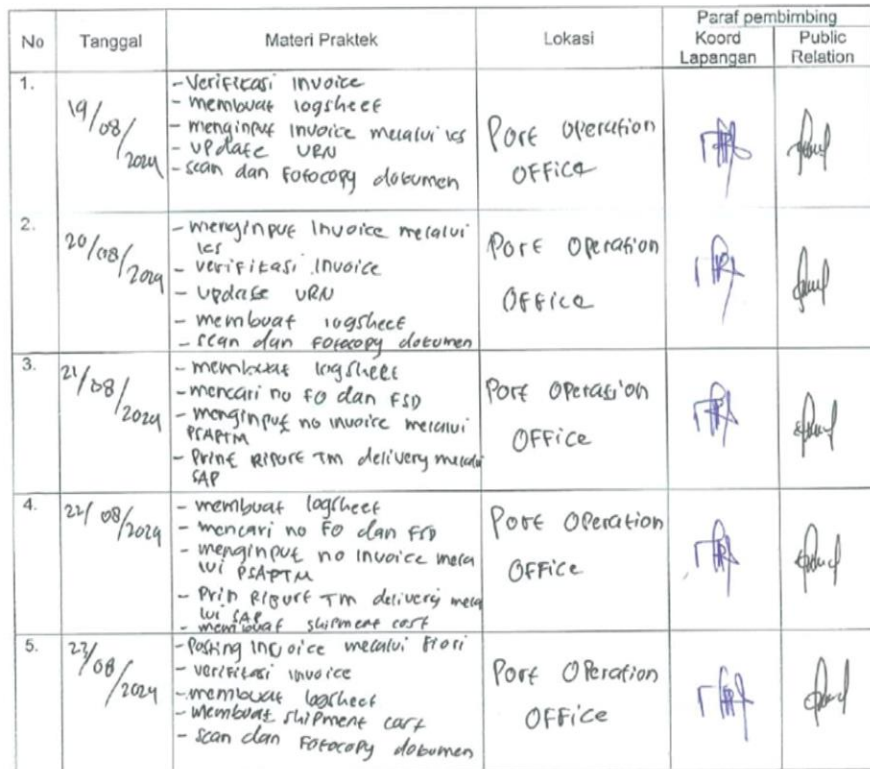 No Tanggal Materi Praktek Lokasi Paraf pembimbing
Koord Lapangan Public Relation
1.
19/08/2024
- Verifikasi invoice
- membuat logsheet
- menginput invoice melalui ics
- update URN
- scan dan Fotocopy dokumen
Port Operation
OFFice
2.
20/08/2024
- menginput invoice melalui
ics
- verifikasi invoice
- update URN
- membuat logsheet
- scan dan Fotocopy dokumen
Port Operation
OFFice
3.
21/08/2024
- membuat logsheet
- mencari no FO dan FSD
- menginput no invoice melalui
PSAPTM
- Print Ripore TM delivery melalui
SAP
Port Operation
OFFice
4.
22/08/2024
- membuat logsheet
- mencari no FO dan FSD
- menginput no invoice mela
lui PSAPTM
- Prin Ripore TM delivery mela
lui SAP
- membuat shipment cost
Port Operation
OFFice
5.
23/08/2024
- Posting invoice melalui Fiori
- verifikasi invoice
- membuat logsheet
- membuat shipment cost
- scan dan Fotocopy dokumen
Port Operation
OFFice